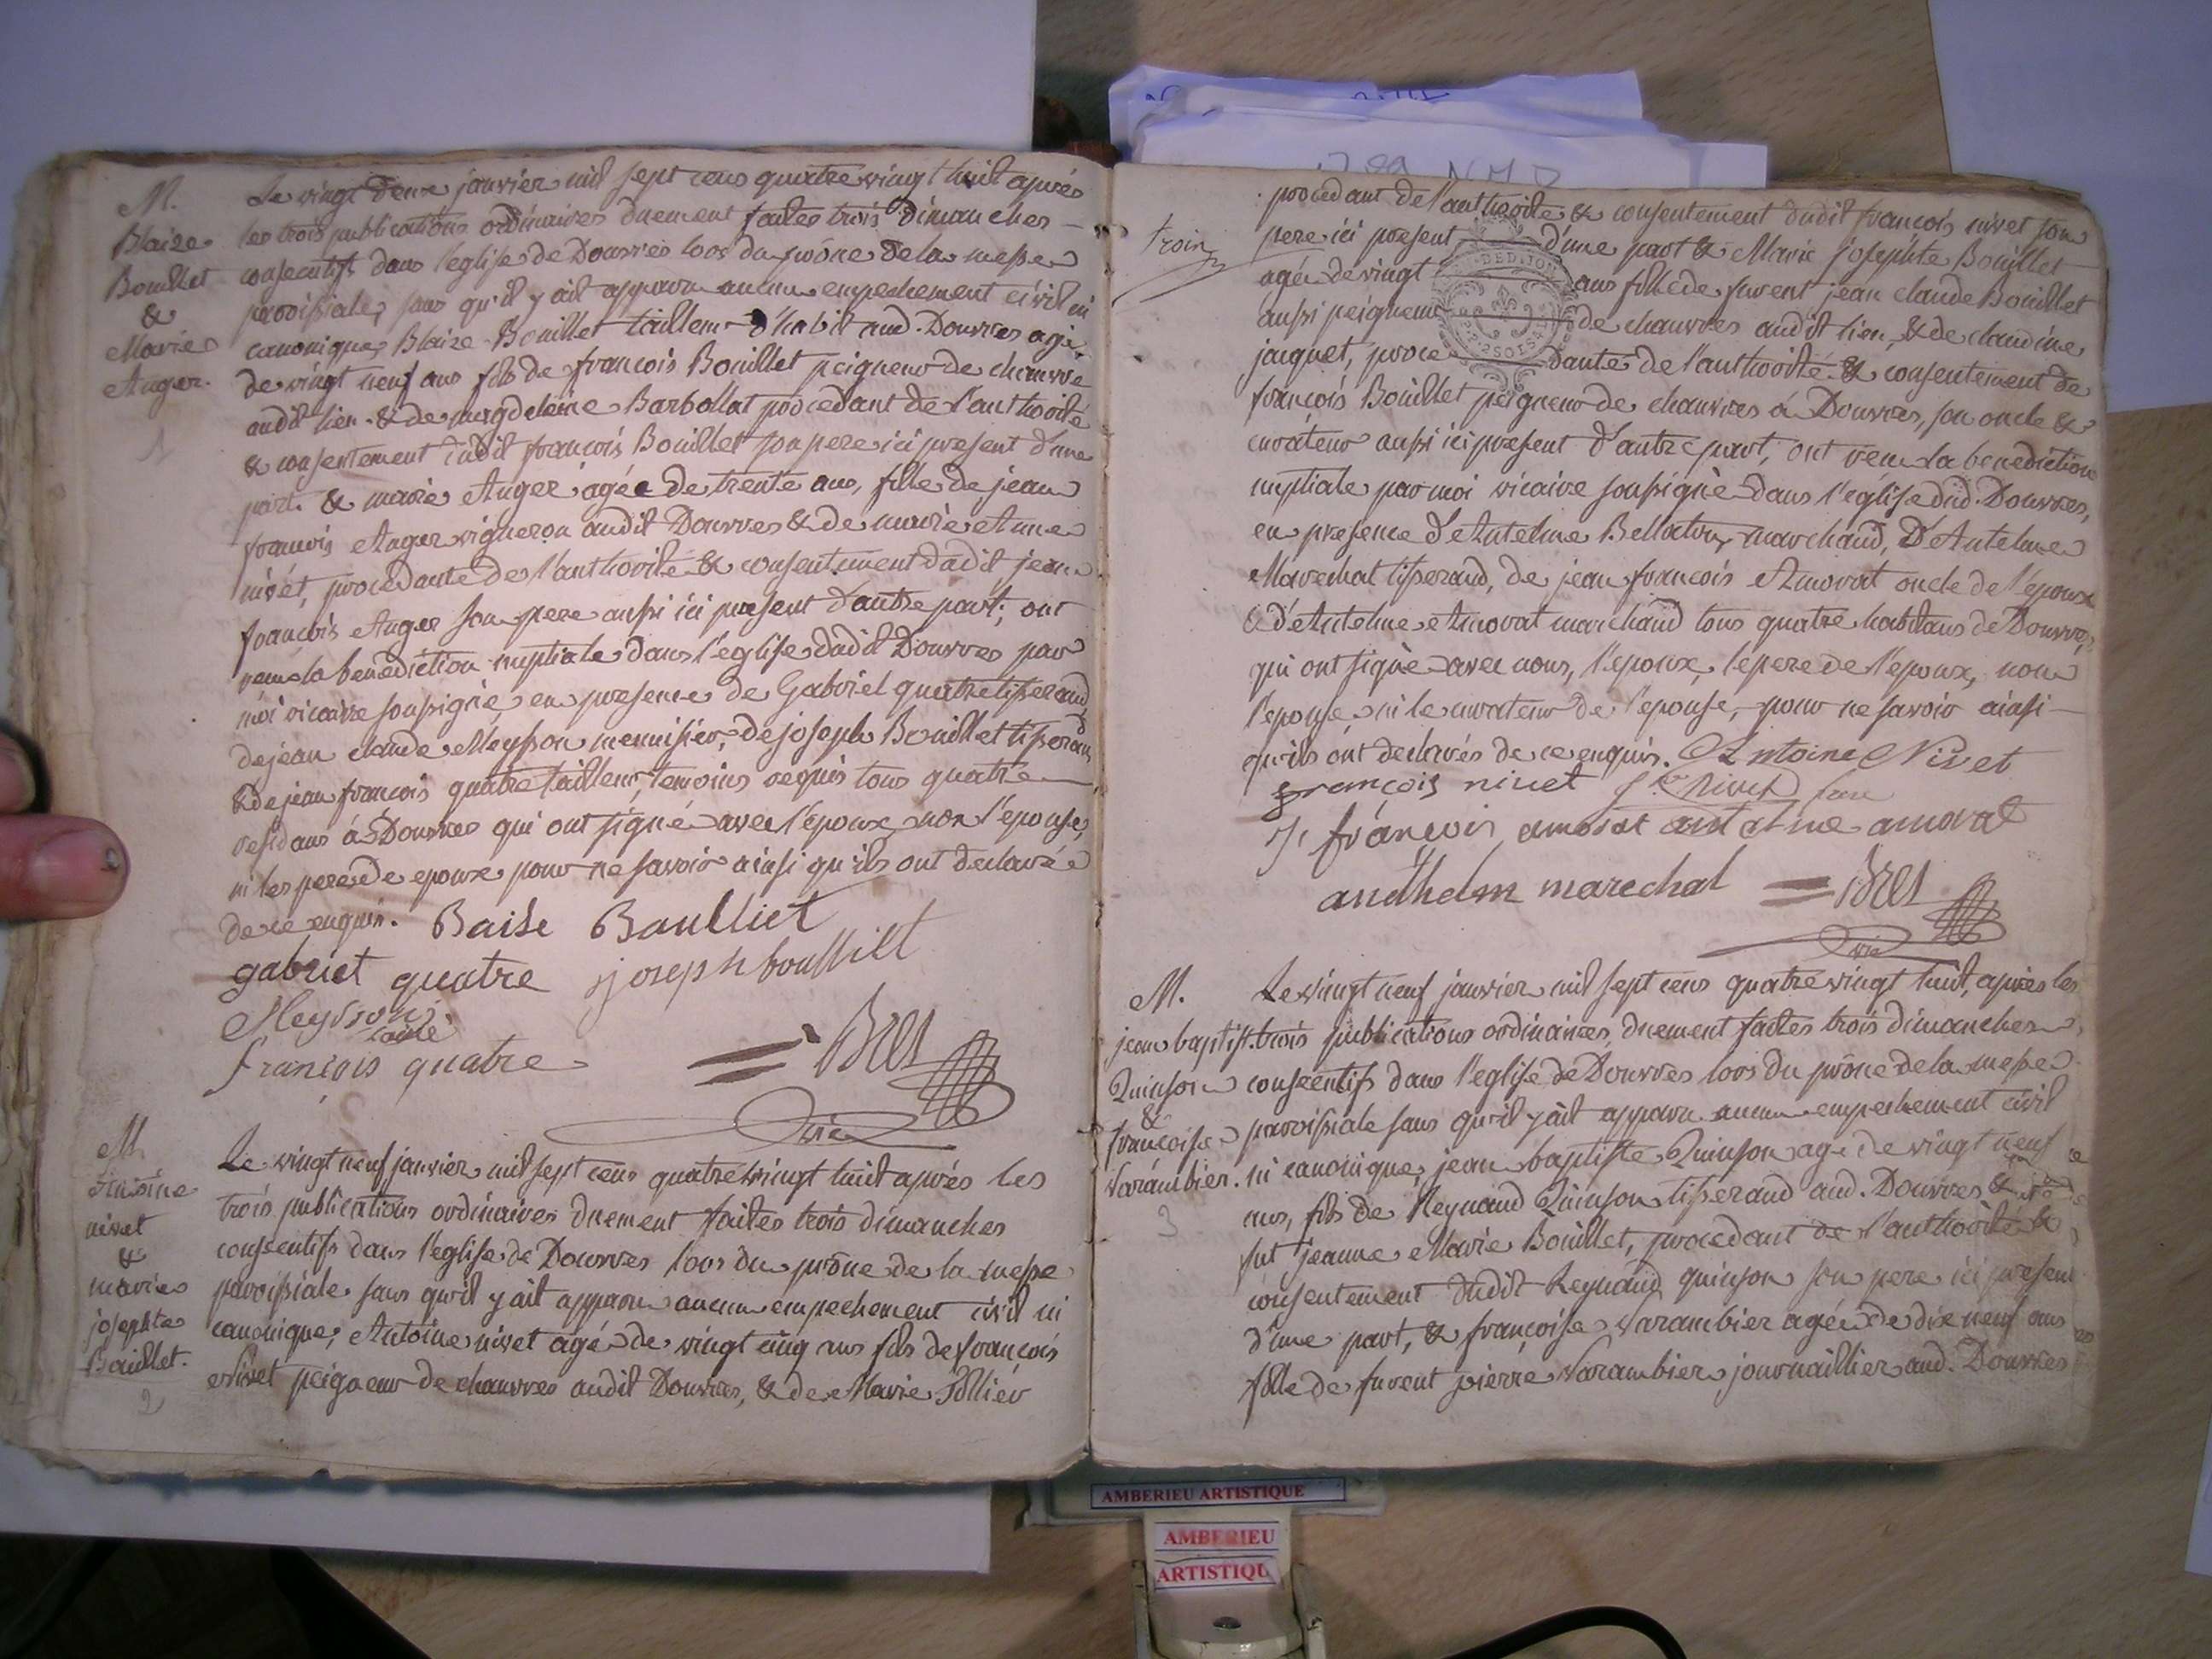 M.
Blaize
Bouillet
&
Marie
Auger.
1
Le vingt deux janvier mil sept cens quatre vingt huit après
les trois publications ordinaires duement faites trois dimanches
consecutifs dans l'eglise de Douvres lors du prône de la messe
paroissiale, sans qu'il y ait apparu aucun empechement civil ni
canonique, Blaize Bouillet tailleur d'habit aud. Douvres agé
de vingt neuf ans fils de françois Bouillet peigneur de chanvre
audit lieu & de magdeleine Barbollat procedant de l'authorité
& consentement dudit françois Bouillet son pere ici present d'une
part. & marie Auger agée de trente ans, fille de jean
françois Auger vigneron audit Douvres & de marie Anne
nivét, procedante de l'authorité & consentement dudit jean
françois Auger son pere aussi ici present d'autre part; ont
reçu la benediction nuptiale dans l'eglise dudit Douvres par
moi vicaire soussigné en presence de Gabriel quatre tisserand
de jean claude Meysson menuisier, de joseph Bouillet tisserand
& de jean françois quatre tailleur, temoins requis tous quatre
residans à Douvres qui ont signé avec l'epoux non l'epouse,
ni les peres de epoux pour ne savoir ainsi qu'ils ont declaré
de ce enquis. Baise Boulliet
gabriet quatre joseph boulliet
Meysson
françois quatre
= Bret
vic
M.
Antoine
nivet
&
marie
josephte
Bouillet.
2
Le vingt neuf janvier mil sept cens quatre vingt huit après les
trois publications ordinaires duement faites trois dimanches
consecutifs dans l'eglise de Douvres lors du prône de la messe
paroissiale sans qu'il y ait apparu aucun empechement civil ni
canonique, Antoine nivet agé de vingt cinq ans fils de françois
Nivet peigneur de chanvres audit Douvres, & de Marie
procedant de l'authorité & consentement dudit françois nivet son
pere ici present d'une part & Marie josephte Bouillet
agée de vingt trois ans fille de furent jean claude Bouillet
aussi peigneur de chanvres audit lieu, & de claudine
jacquet, procedante de l'authorité & consentement de
françois Bouillet peigneur de chanvres à Douvres, son oncle &
curateur aussi ici present d'autre part, ont reçu la benediction
nuptiale par moi vicaire soussigné dans l'eglise dud. Douvres,
en presence d'Antelme Bellaton marchand, D'Antelme
Marechat tisserand, de jean françois Amorat oncle de l'epoux
& d'Antelme Amorat marchand tous quatre habitans de Douvres,
qui ont signé avec nous, l'epoux, le pere de l'epoux, non
l'epouse ni le curateur de l'epouse, pour ne savoir ainsi
qu'ils ont declarés de ce enquis. Antoine Nivet
françois nivet
J. françois amorat antelme amorat
andhelm marechal = Bret
vic
M.
jean baptist.
Quinson
&
françoise
Varambier.
3
Le vingt neuf janvier mil sept cens quatre vingt huit, après les
trois publications ordinaires, duement faites trois dimanches
consecutifs dans l'eglise de Douvres lors du prône de la messe
paroissiale sans qu'il y ait apparu aucun empechement civil
ni canonique, jean baptiste Quinson agé de vingt neuf
ans, fils de Reynaud Quinson tisserand aud. Douvres &
fut jeanne Marie Bouillet, procedant de l'authorité &
consentement dudit Reynaud quinson son pere ici present
d'une part, & françoise Varambier agée de dix neuf ans
fille de furent pierre Varambier journaillier aud. Douvres
AMBERIEU ARTISTIQUE
AMBERIEU
ARTISTIQU